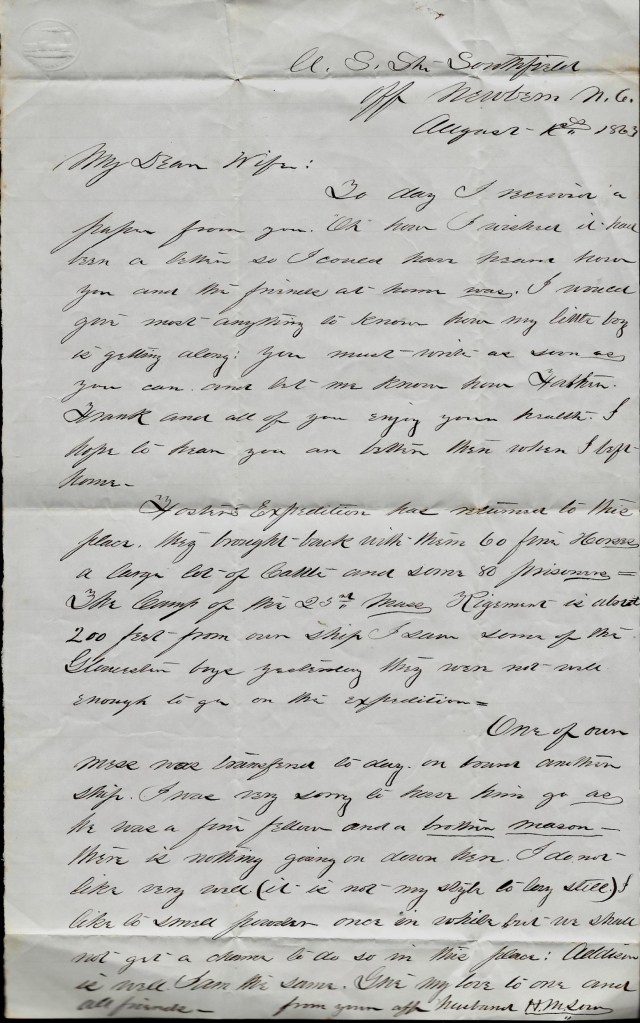 U. S. Str Southfield
Off Newbern N.C.
August 1863
My Dear Wife:
To day I received a
paper from you. Oh how I wished it had
been a letter so I could have heard how
you and the friends at home was. I would
give most anything to know how my little boy
is getting along: you must write as soon as
you can and let me know how Father.
Frank and all of you enjoy your health. I
hope to hear you are better then when I left
home-
Foster's Expedition has returned to this
place. they brought back with them 60 fine Horses
a large lot of Cattle and some 80 prisoners=
The Camp of the 23rd Mass Rigement is about
200 feet from our ship I saw some of the
Gloucester boys yesterday they were not well
enough to go on the expedition=
One of our
mess was transfered to day. on board another
ship. I was very sorry to have him go as
he was a fine fellow and a brother mason-
there is nothing going on down here. I do not
like very well (it is not my style to lay still) I
like to smell powder once in while but we shall
not get a chance to do so in this place: Addison
is well I am the same. Give my love to one and
all friends- from your aff husband H.M.